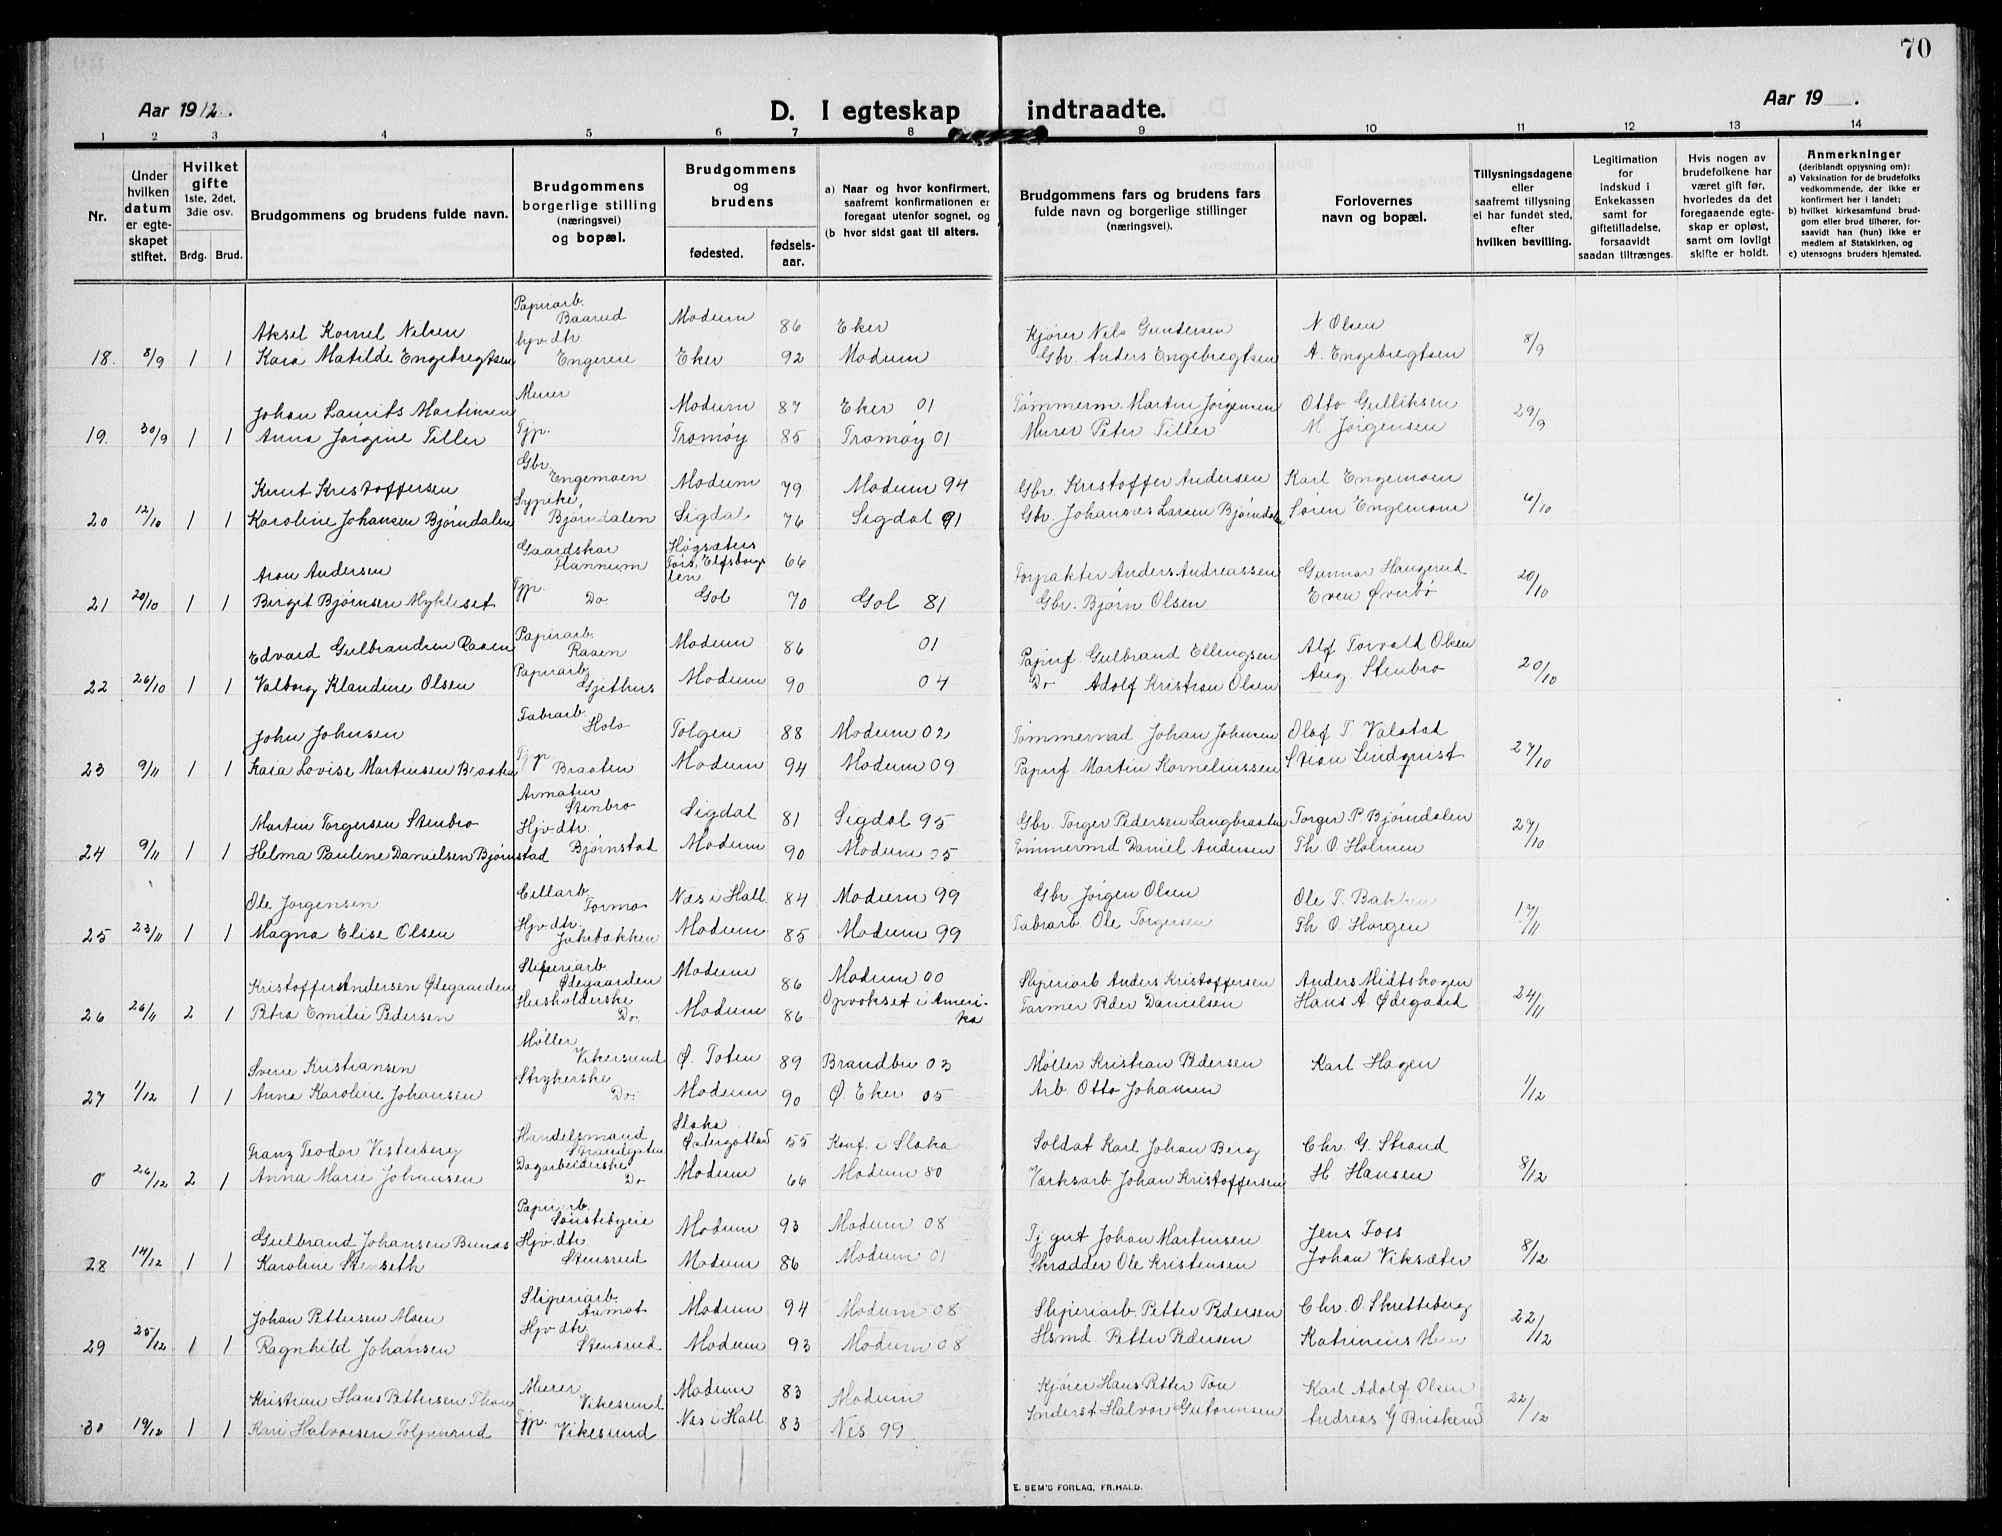 70
Aar 1912.
D. I egteskap indtraadte.
Aar 19 .
1 2 3 4 5 6 7 8 9 10 11 12 13 14
Nr.
Under hvilken datum er egte- skapet stiftet.
Hvilket gifte 1ste, 2det, 3die osv.
Brdg. Brud.
Brudgommens og brudens fulde navn.
Brudgommens borgerlige stilling (næringsvei) og bopæl.
Brudgommens og brudens
fødested. fødsels- aar.
a) Naar og hvor konfirmert, saafremt konfirmationen er foregaat utenfor sognet, og
(b hvor sidst gaat til alters.
Brudgommens fars og brudens fars fulde navn og borgerlige stillinger (næringsvei).
Forlovernes navn og bopæl.
Tillysningsdagene eller saafremt tillysning ei har fundet sted, efter hvilken bevilling.
Legitimation for indskud i Enkekassen samt for giftetilladelse, forsaavidt saadan tiltrænges.
Hvis nogen av brudefolkene har været gift før, hvorledes da det foregaaende egte- skap er opløst, samt om lovligt skifte er holdt.
Anmerkninger (deriblandt opysning om):
a) Vaksination for de brudefolks vedkommende, der ikke er konfirmert her i landet;
b) hvilket kirkesamfund brud- gom eller brud tilhører, for- saavidt han (hun) ikke er medlem af Statskirken, og
c) utensogns bruders hjemsted.
Aksel Kornel Nilsen Papirarb. Baarud Modum 86 Eker Kjører Nils Gundersen N Olsen
18. 8/9 1 1 Kaia Matilde Engebregtsen hjv dtr. Engerie Eker 92 Modum Gbr. Anders Engebregtsen A. Engebregtsen 8/9
Johan Laurits Martinsen Murer Modum 87 Eker 01 Tømmerm. Martin Jørgensen Otto Gulliksen
19. 30/9 1 1 Anna Jørgine Tiller Tjp. Tromøy 85 Tromøy 01 Murer Peter Tiller M. Jørgensen 29/9
Knut Kristoffersen Gbr. Engemoen Modum 79 Modum 94 Gbr. Kristoffer Andersen Karl Engemoen
20 12/10 1 1 Karoline Johansen Bjørndalen Sypike Bjørndalen Sigdal 76 Sigdal 91 Gbr. Johannes Larsen Bjørndalen Søren Engemoen 6/10
Aron Andersen Gaardskar Hannum Høgsæters Tors, Elfsborgs len 66 Torpakter Anders Andreassen Gunnar Haugerud
21 20/10 1 1 Birgit Bjørnsen Mykleset Tjp. Do Gol 70 Gol 81 Gbr. Bjørn Olsen Even Øverbø 20/10
Edvard Gulbrandsen Raaen Papirarb. Raaen Modum 86 01 Papirf. Gulbrand Ellingsen Alf Torvald Olsen
22 26/10 1 1 Valborg Klaudine Olsen Papirarb. Gjethus Modum 90 04 Do Adolf Kristian Olsen Aug. Stenbro 20/10
John Johnsen Fabrarb Holo Tolgen 88 Modum 02 Tømmermd Johan Johnsen Olaf T Valstad
23 9/11 1 1 Kaia Lovise Martinsen Braaten Tjp Braaten Modum 94 Modum 09 Papirf. Martin Kornelinssen Stian Lindqvist 27/10
Martin Torgersen Stenbro Armatur Stenbro Sigdal 81 Sigdal 95 Gbr. Torger Pedersen Langbraaten Torger P Bjørndalen
24 9/11 1 1 Helma Pauline Danielsen Bjørnstad Hjv dtr. Bjørnstad Modum 90 Modum 05 Tømmermd Daniel Andersen Th. O Holmen 27/10
Ole Jørgensen Cellarb Formo Næs i Hall. 84 Modum 99 Gbr Jørgen Olsen Ole T. Bakken
25 23/11 1 1 Magna Elise Olsen Hjv dtr. Jakebakken Modum 85 Modum 99 Fabrarb Ole Torgersen Th O. Horgen 17/11
Kristoffer Andersen Ødegaarden Sliperiarb Ødegaarden Modum 86 Modum 00 Sliperiarb Anders Kristoffersen Anders Midtskogen
26 26/11 2 1 Petra Emilie Pedersen Husholderske Do. Modum 86 Opvokset i Ameri- ka Farmer Peder Danielsen Hans A. Ødegaard 24/11
Sverre Kristiansen Møller Vikersund Ø. Toten 89 Brandbu 03 Møller Kristian Pedersen Karl Hagen
27 1/12 1 1 Anna Karoline Johansen Strykerske Do. Modum 90 Ø. Eker 05 Arb Otto Johansen 1/12
Franz Teodor Vesterberg Handelsmand Strandgaten Slaka Østergotland 55 Konf. i Slaka Soldat Karl Johan Berg Chr. G. Strand
0 26/12 2 1 Anna Marie Johansen Dagarbeiderske Do Modum 66 Modum 80 Verksarb Johan Kristoffersen H. Hansen 8/12
Gulbrand Johansen Bunæs Papirarb. Sønstebyeie Modum 93 Modum 08 Tj gut Johan Martinsen Jens Foss
28 14/12 1 1 Karoline Stenseth Hjv. dtr Stensrud Modum 86 Modum 01 Skrædder Ole Kristensen Johan Viksæter 8/12
Johan Pettersen Moen Sliperiarb. Aamot Modum 94 Modum 08 Sliperiarb. Petter Pedersen Chr. O. Skretteberg
29 25/12 1 1 Ragnhild Johansen Hjv dtr. Stensrud Modum 93 Modum 08 Hsmd. Petter Pedersen Katrinius Moen 22/12
Kristian Hans Pettersen Thon Murer Vikesund Modum 83 Modum Kjører Hans Petter Ton Karl Adolf Olsen
30 19/12 1 1 Kari Halvorsen Tolpinrud Tjp. Vikesund Næs i Hall. 83 Nes 99 Inderst Halvor Gutormsen Andreas G Briskerud 22/12
E. SEM'S FORLAG, FR.HALD.